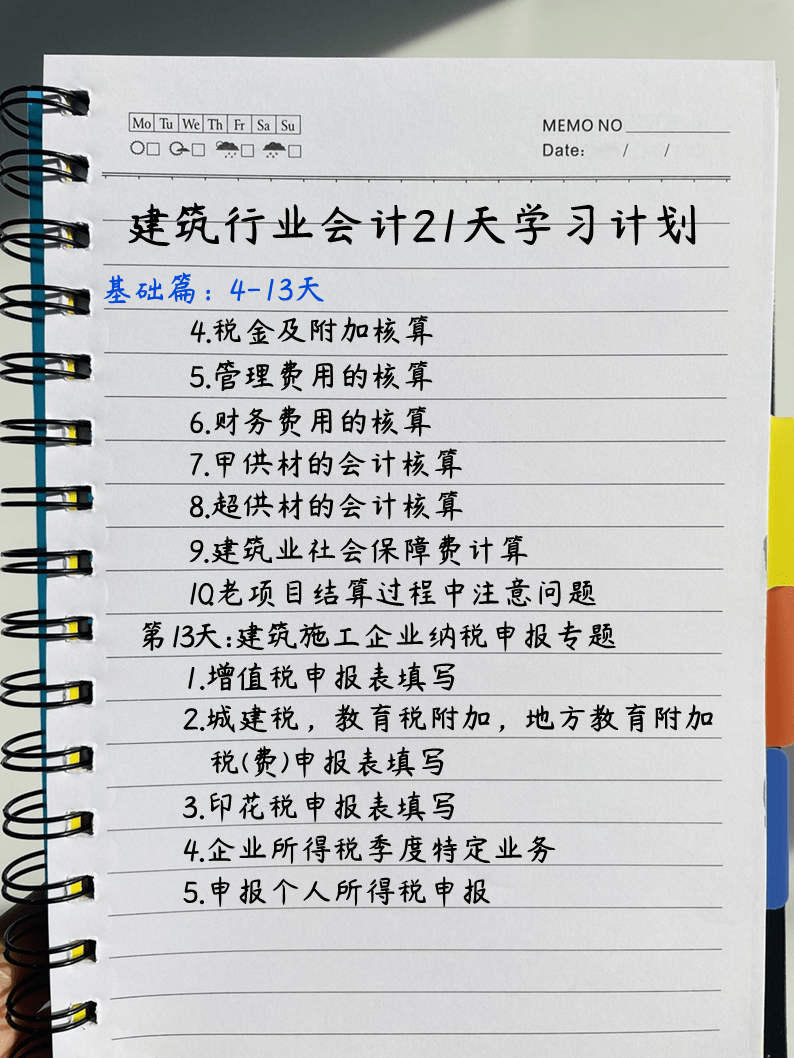 Mo Tu We Th Fr Sa Su
MEMO NO
Date: / /
建筑行业会计21天学习计划
基础篇：4-13天
4.税金及附加核算
5.管理费用的核算
6.财务费用的核算
7.甲供材的会计核算
8.超供材的会计核算
9.建筑业社会保障费计算
10.老项目结算过程中注意问题
第13天:建筑施工企业纳税申报专题
1.增值税申报表填写
2.城建税，教育税附加，地方教育附加
税(费)申报表填写
3.印花税申报表填写
4.企业所得税季度特定业务
5.申报个人所得税申报